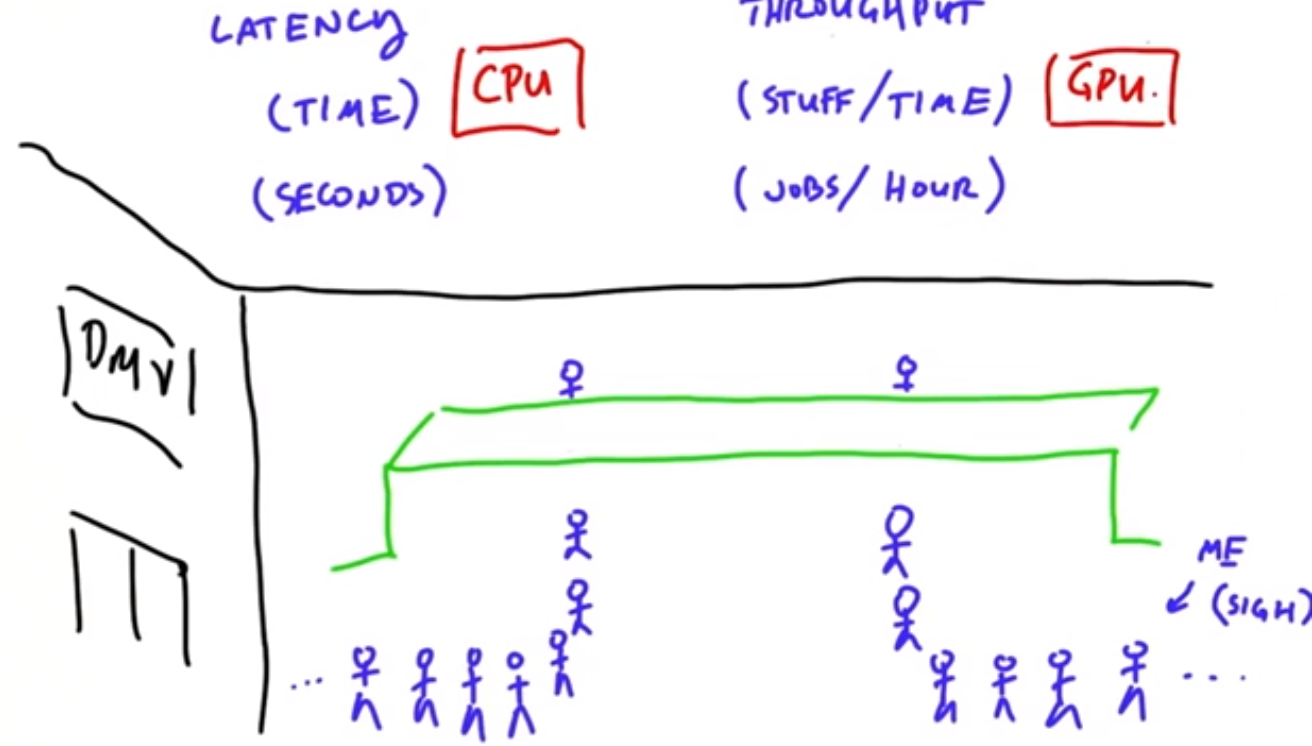 LATENCY
(TIME)
(SECONDS)
CPU
THROUGHPUT
(STUFF/TIME)
(JOBS/HOUR)
GPU.
DMV
ME
(SIGH)
...
....